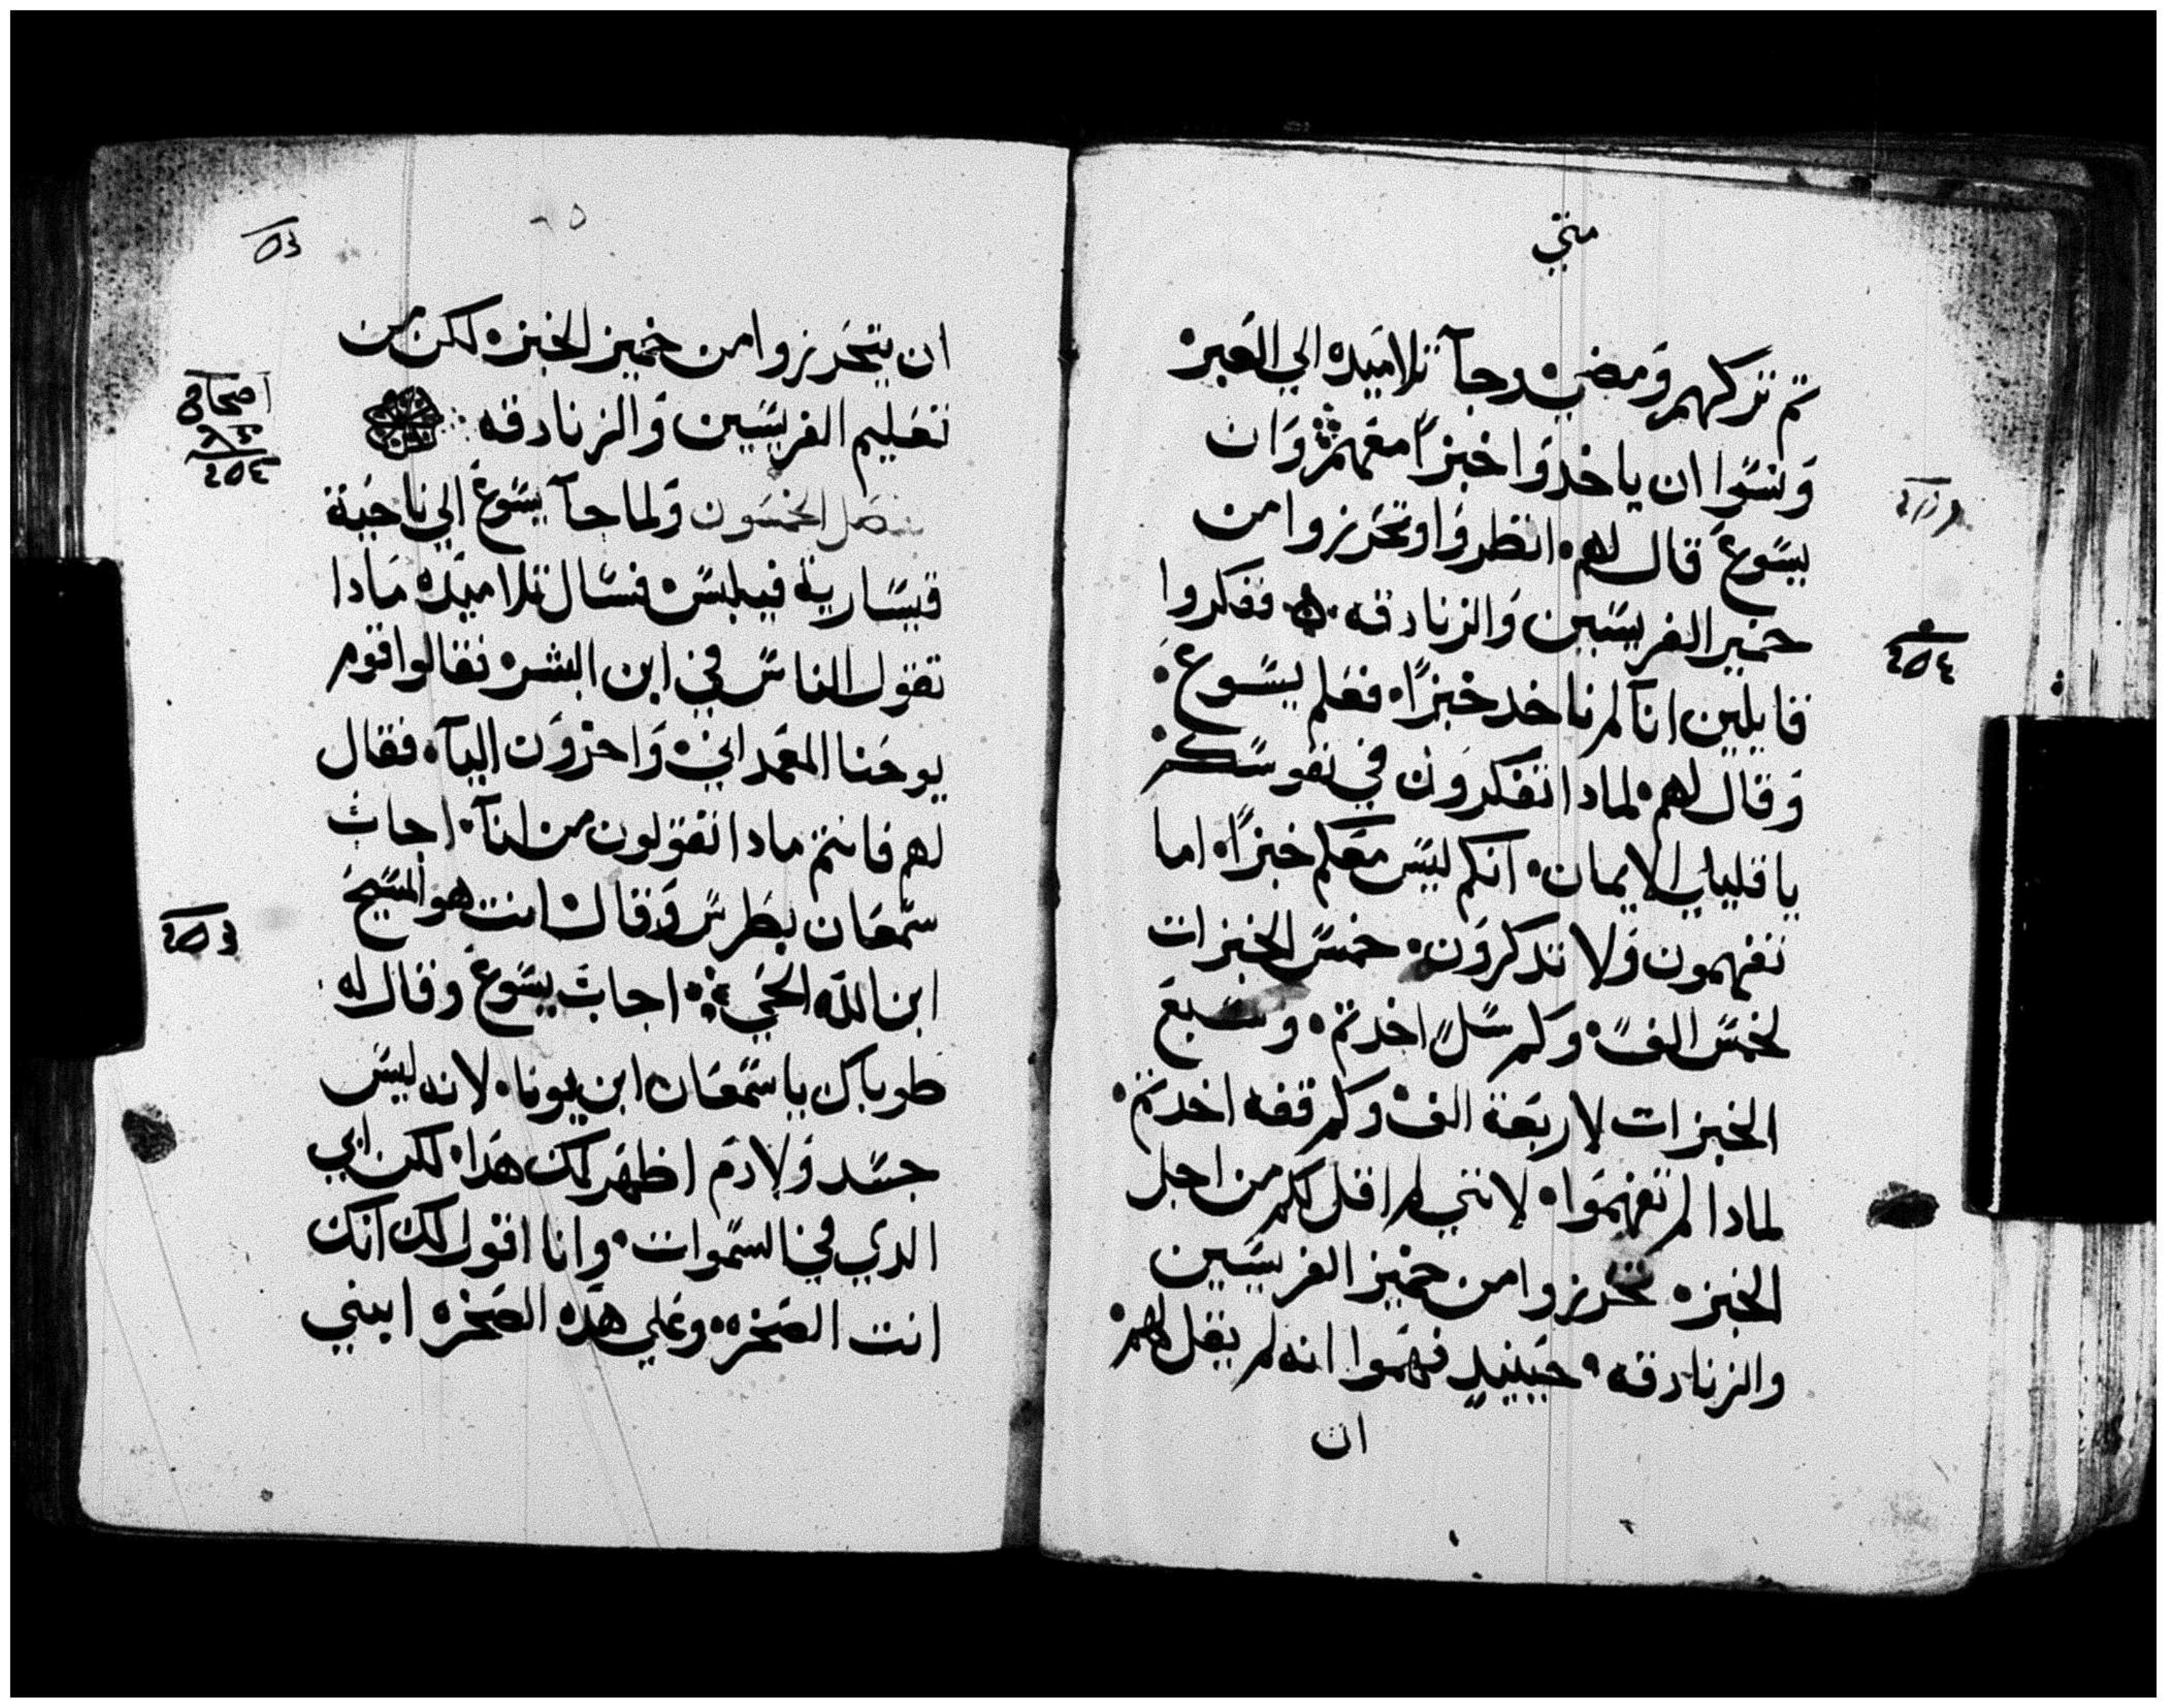 متي
تم تركهم ومضي وجآ تلاميده الي العبر
ونسوا ان ياخدوا خبزًا معهم وان
يسوع قال لهم انظروا وتحرزوا من
خمير الفريسين والزنادقه ففكروا
قايلين انآ لم ناخد خبزًا فعلم يسوع
وقال لهم لمادا تفكرون في نفوسكم
يا قليلي الايمان انكم ليس معكم خبزًا اما
تفهمون ولا تدكرون خمس الخبزات
لخمس الف وكم سل اخدتم وسبع
الخبزات لاربعة الف وكم قفه اخدتم
لمادا لم تفهموا لانني لم اقل لكم من اجل
الخبز تحرزوا من خمير الفريسين
والزنادقه حينيدٍ فهموا انه لم يقل لهم
ان
ان يتحرزوا من خمير الخبز لكن من
تعليم الفريسين والزنادقه
اصحاح
فصل الخمسون ولما جآ يسوع الي ناحية
قيسارية فيلبس فسال تلاميده مادا
تقول الناس في ابن البشر فقالوا قوم
يوحنا المعمداني واخرون اليآ فقال
لهم فانتم مادا تقولون من انآ اجاب
سمعان بطرس وقال انت هو المسيح
ابن الله الحي اجاب يسوع وقال له
طوباك يا سمعان ابن يونا لانه ليس
جسد ولا دم اظهر لك هدا لكن ابي
الدي في السموات وانا اقول لك انك
انت الصخره وعلي هده الصخره ابني